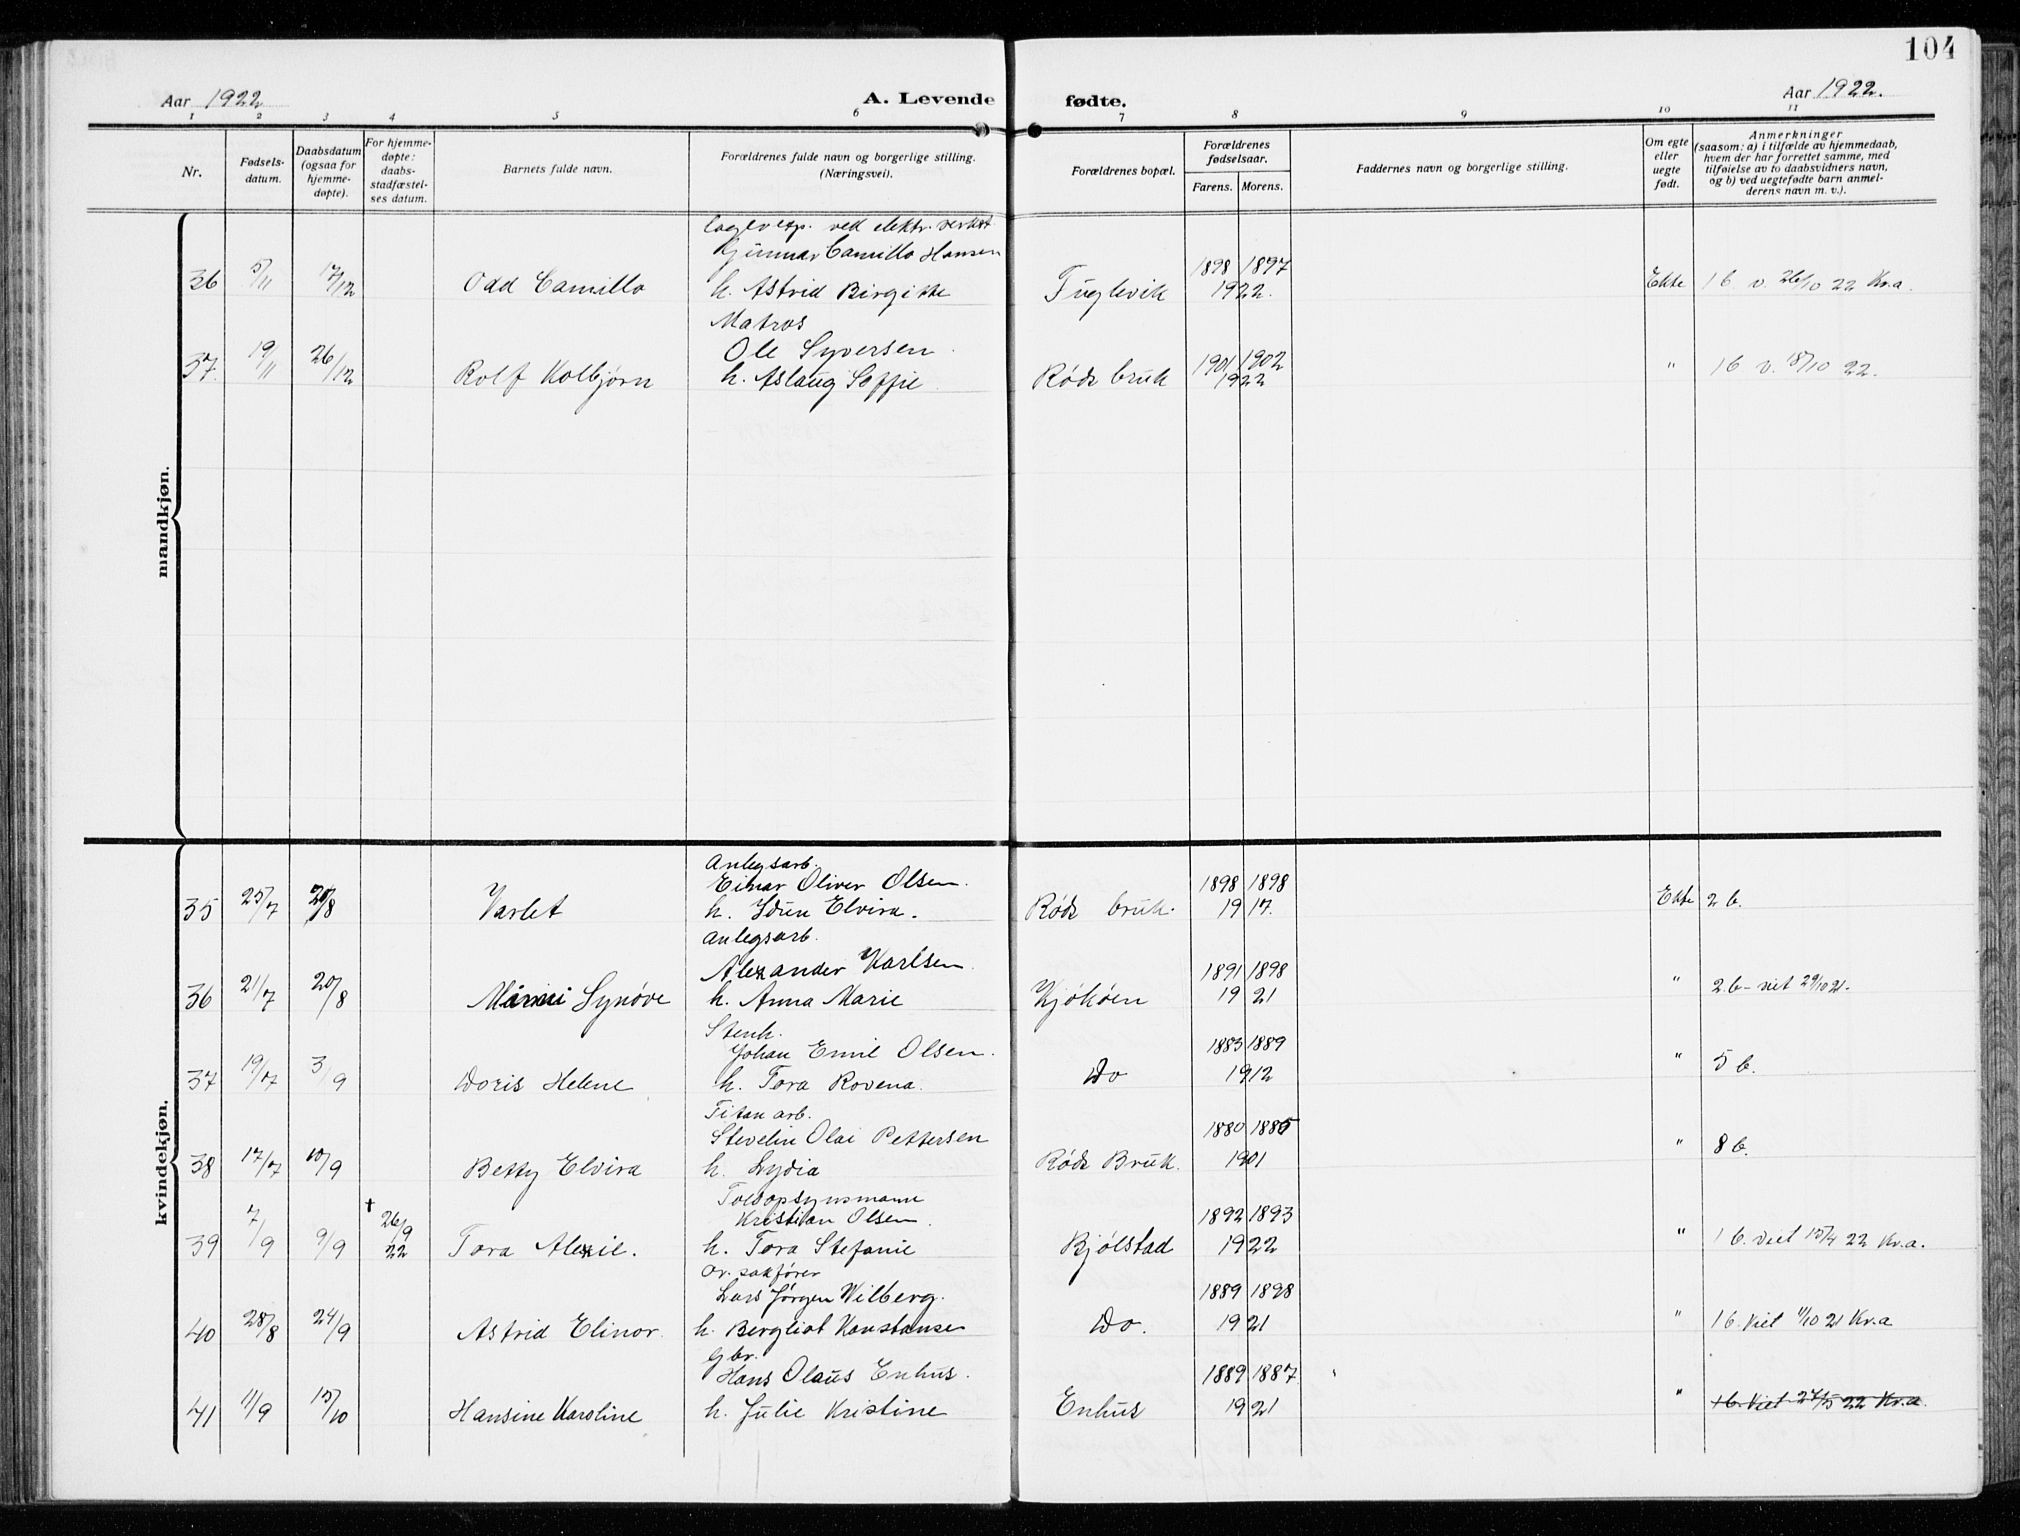 104
Aar 1922
A. Levende
fødte.
Aar 1922.
1 2 3 4 5 6 7 8 9 10 11
Nr.
Fødsels-
datum.
Daabsdatum
(ogsaa for
hjemme-
døpte).
For hjemme-
døpte:
daabs-
stadfæstel-
ses datum.
Barnets fulde navn.
Forældrenes fulde navn og borgerlige stilling.
(Næringsvei).
Forældrenes bopæl.
Forældrenes
fødselsaar.
Farens. Morens.
Faddernes navn og borgerlige stilling.
Om egte
eller
uegte
født.
Anmerkninger
(saasom: a) i tilfælde av hjemmedaab,
hvem der har forrettet samme, med
tilføielse av to daabsvidners navn,
og b) ved uegtefødte barn anmel-
derens navn m. v.).
mandkjøn.
ved elektr. verket
Gunnar Camillo Hansen 1898 1897
36 5/11 17/12 Odd Camillo h. Astrid Birgitte Fuglevik 1922. Ekte 1 b v. 26/10 22 Kr.a.
Matros
Ole Syversen 1901 1902
37. 19/11 26/12 Rolf Kolbjørn h. Aslaug Soffie Røds bruk 1922 " 1 b v. 18/10 22.
kvindekjøn.
Anlegsarb.
Einar Oliver Olsen. 1898 1898
35 25/7 20/8 Varlet h. Idun Elvira. Røds bruk. 1917. Ekte 2 b.
Anlegsarb.
Alexander Karlsen 1891 1898
36 21/7 20/8 Synøve h. Anna Marie Kjøkøen 1921 " 2 b - viet 29/10 21.
Stenh.
Johan Emil Olsen. 1883 1889
37 19/7 3/9 Doris Helene h. Tora Rovena. Do 1912 " 5 b.
Titan arb.
Stevelin Olai Pettersen 1880 1885
38 17/7 10/9 Betty Elvira h. Lydia Røds Bruk. 1901 " 8 b.
Toldopsynsmann
Kristian Olsen. 1892 1893
39 7/9 9/9 † 26/9 22 Tora Alexie. h. Tora Stefanie Bjølstad 1922 " 1 b. viet 15/4 22 Kr.a.
Or. sakfører
Lars Jørgen Wilberg. 1889 1898
40 28/8 24/9 Astrid Elinor. h. Bergliot Konstanse Do. 1921 " 1 b. viet 11/10 21 Kr.a
Gbr.
Hans Olaus Enhus. 1889 1887
41 11/9 15/10 Hansine Karoline h. Julie Kristine Enhus 1921 " 1 b. viet 27/5 22 Kr.a.